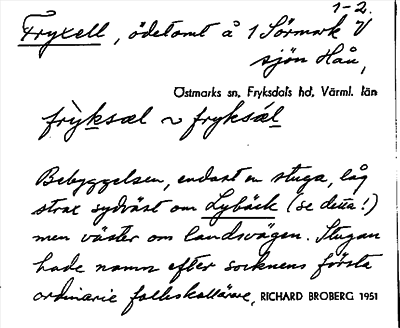 1-2.
Fryxell, ödetomt å 1 Sörmark V
sjön Håu,
Östmarks sn, Fryksdals hd, Värml. län
frỳksæl ~ fryksǽl
Bebyggelsen, endast en stuga, låg
strax sydväst om Lybäck (se detta!)
men väster om landsvägen. Stugan
hade namn efter socknens första
ordinarie folkskollärare, RICHARD BROBERG 1951